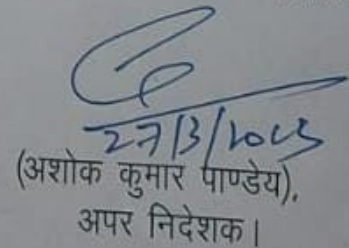 27/3/2023
(अशोक कुमार पाण्डेय),
अपर निदेशक।